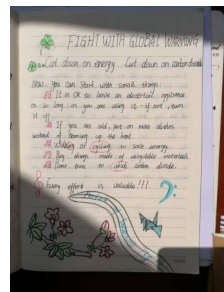 FIGHT WITH GLOBAL WARMING
Cut down on energy Cut down on carbon dioxide
Now, you can start with small things.
It is OK to leave an electrical appliance
on so long as you are using it - if not, turn
it off.
If you are cold, put on more clothes
instead of turning up the heat.
Walking or cycling to save energy.
Buy things made of recyclable materials.
Plant trees to absorb carbon dioxide.
Every effort is valuable!!!